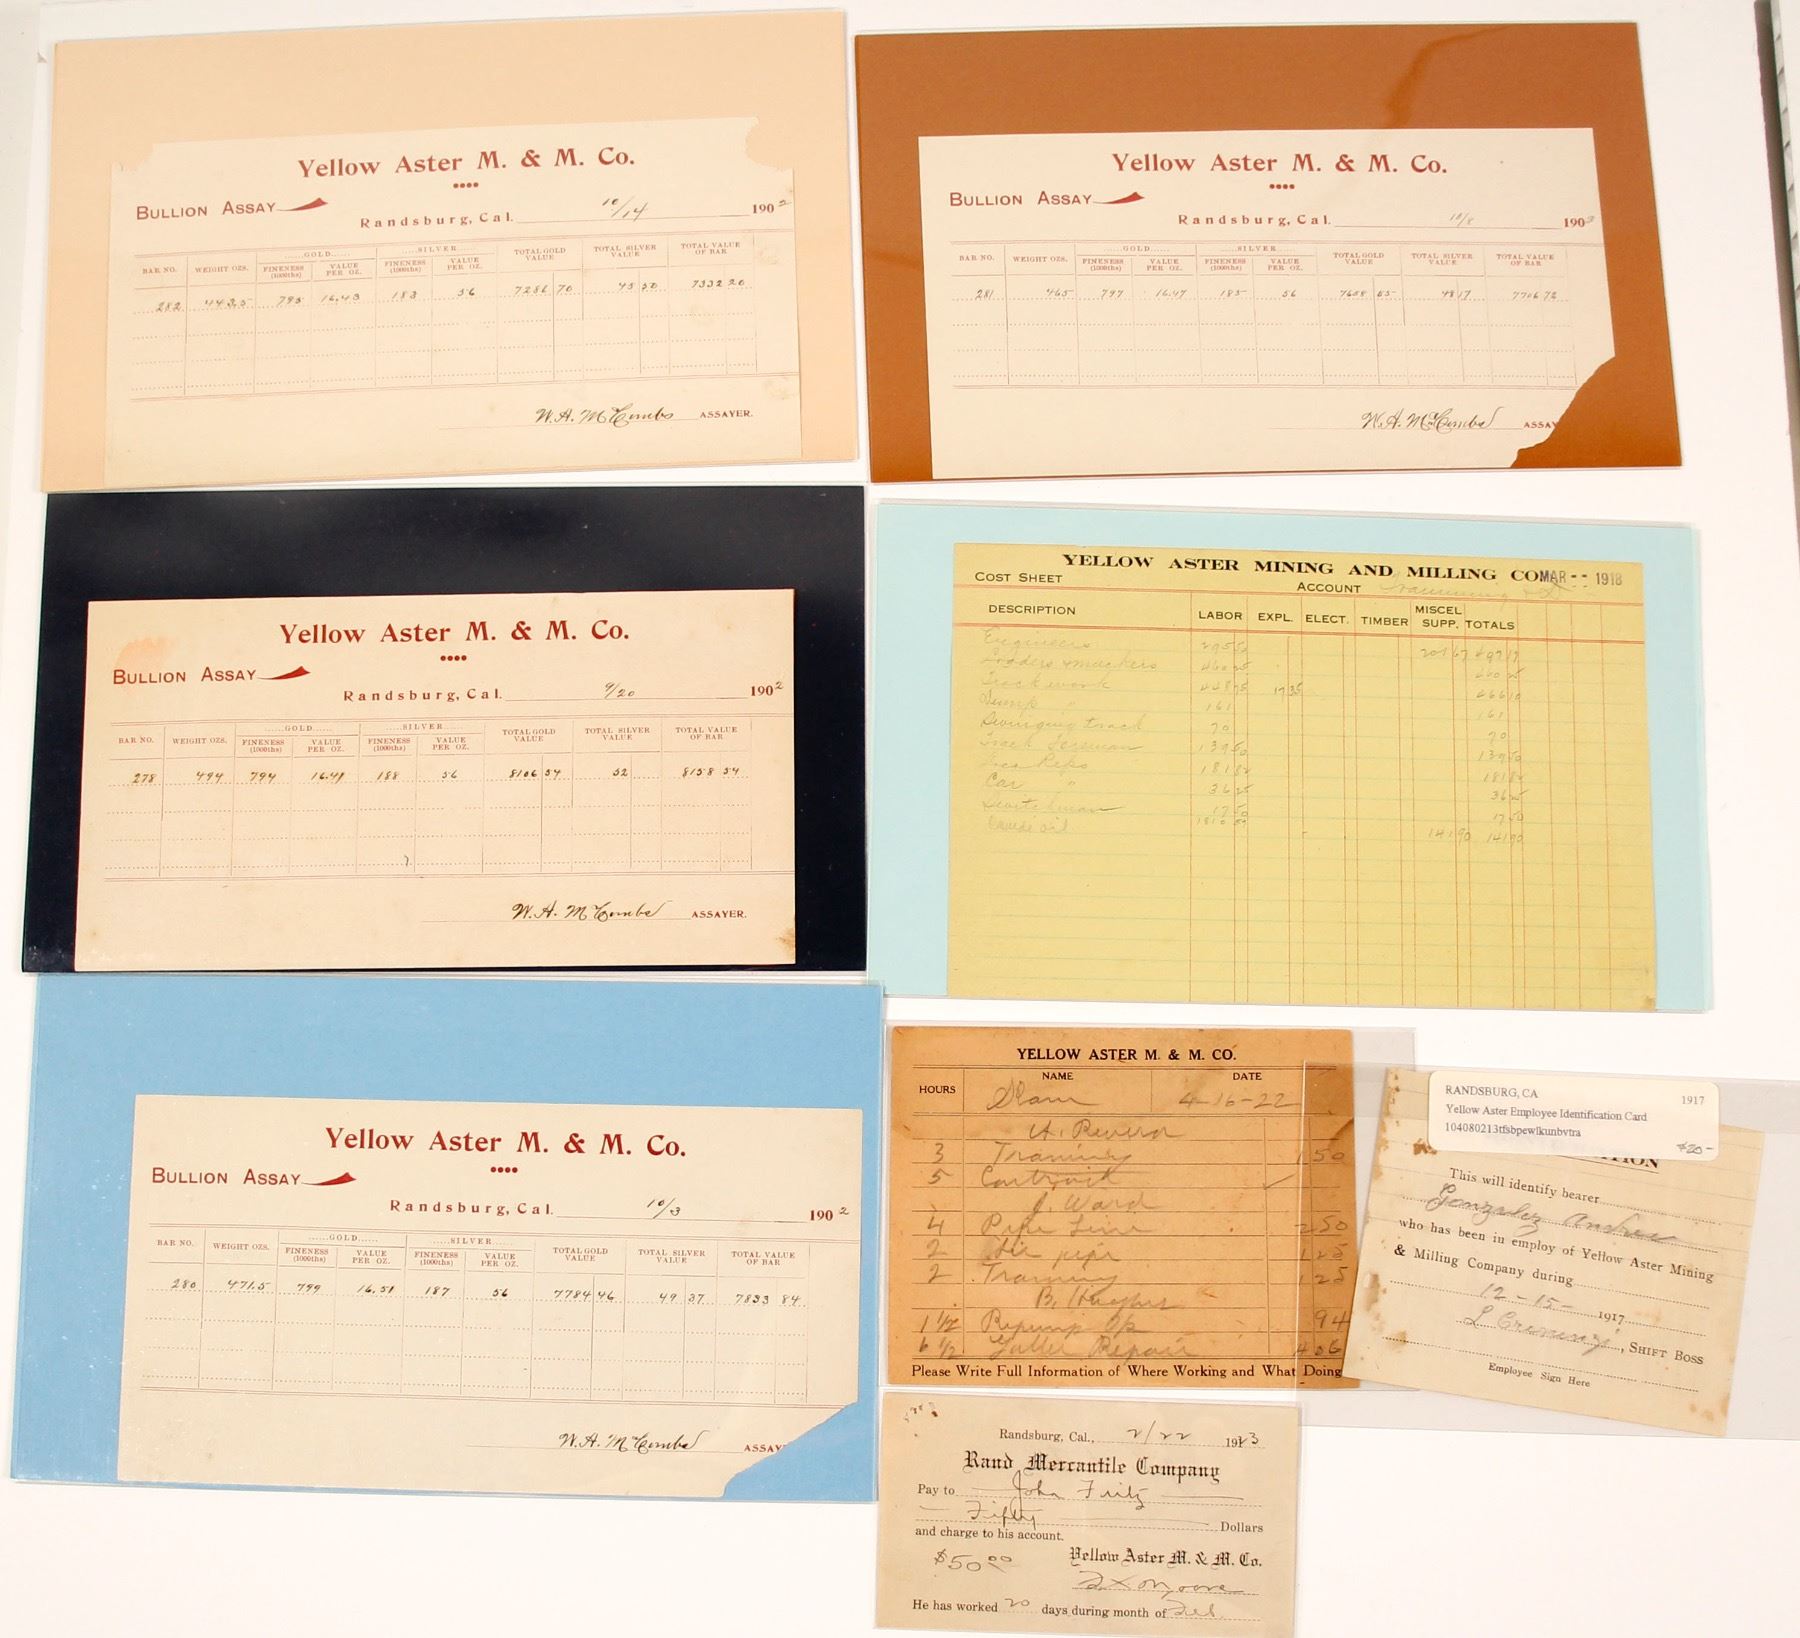 Yellow Aster M. & M. Co.
Bullion Assay
Randsburg, Cal. 10/14 1902
GOLD SILVER
BAR NO. WEIGHT OZS. FINENESS (1000ths) VALUE PER OZ. FINENESS (1000ths) VALUE PER OZ. TOTAL GOLD VALUE TOTAL SILVER VALUE TOTAL VALUE OF BAR
282 443.5 795 16.43 183 56 7286 70 45 50 7332 20
W. A. McCombs ASSAYER.
Yellow Aster M. & M. Co.
Bullion Assay
Randsburg, Cal. 10/8 190
GOLD SILVER
BAR NO. WEIGHT OZS. FINENESS (1000ths) VALUE PER OZ. FINENESS (1000ths) VALUE PER OZ. TOTAL GOLD VALUE TOTAL SILVER VALUE TOTAL VALUE OF BAR
281 465 797 16.47 185 56 7658 55 48 17 7706 72
W. A. McCombs ASSAY
Yellow Aster M. & M. Co.
Bullion Assay
Randsburg, Cal. 9/20 1902
GOLD SILVER
BAR NO. WEIGHT OZS. FINENESS (1000ths) VALUE PER OZ. FINENESS (1000ths) VALUE PER OZ. TOTAL GOLD VALUE TOTAL SILVER VALUE TOTAL VALUE OF BAR
278 494 794 16.41 188 56 8106 54 52 8158 54
W. A. McCombs ASSAYER.
YELLOW ASTER MINING AND MILLING CO MAR -- 1918
COST SHEET ACCOUNT Tramming
DESCRIPTION LABOR EXPL. ELECT. TIMBER MISCEL SUPP. TOTALS
Engineers 295 50 201 67 497 17
Loaders & muckers 460 25 460 25
Track work 448 75 17 35 466 10
Dump " 161 161
Swinging track 70 70
Track foreman 139 50 139 50
Loco Reps 181 82 181 82
Car " 36 25 36 25
Switchman 17 50 17 50
1810 57
oil 141 90 141 90
Yellow Aster M. & M. Co.
Bullion Assay
Randsburg, Cal. 10/3 1902
GOLD SILVER
BAR NO. WEIGHT OZS. FINENESS (1000ths) VALUE PER OZ. FINENESS (1000ths) VALUE PER OZ. TOTAL GOLD VALUE TOTAL SILVER VALUE TOTAL VALUE OF BAR
280 471.5 799 16.51 187 56 7784 46 49 37 7833 84
W. A. McCombs ASSAY
YELLOW ASTER M. & M. CO.
HOURS NAME DATE
4-16-22
A. Rivera
3 Tramming 1 50
5 Contract ✓
J. Ward
4 Pipe Line 2 50
2 Air pipe 1 25
2 Tramming 1 25
B. Hughes
1 1/2 Repump Op 94
6 1/2 Repair 4 06
Please Write Full Information of Where Working and What Doing
RANDSBURG, CA 1917
Yellow Aster Employee Identification Card
104080213tfsbpewlkunbvtra
$20-
TION
This will identify bearer
Gonzalez Andrew
who has been in employ of Yellow Aster Mining
& Milling Company during
12-15- 1917
SHIFT BOSS
Employee Sign Here
Randsburg, Cal., 2/22 1923
Rand Mercantile Company
Pay to John Fritz
Fifty Dollars
and charge to his account.
$50 00 Yellow Aster M. & M. Co.
He has worked 20 days during month of Feb.